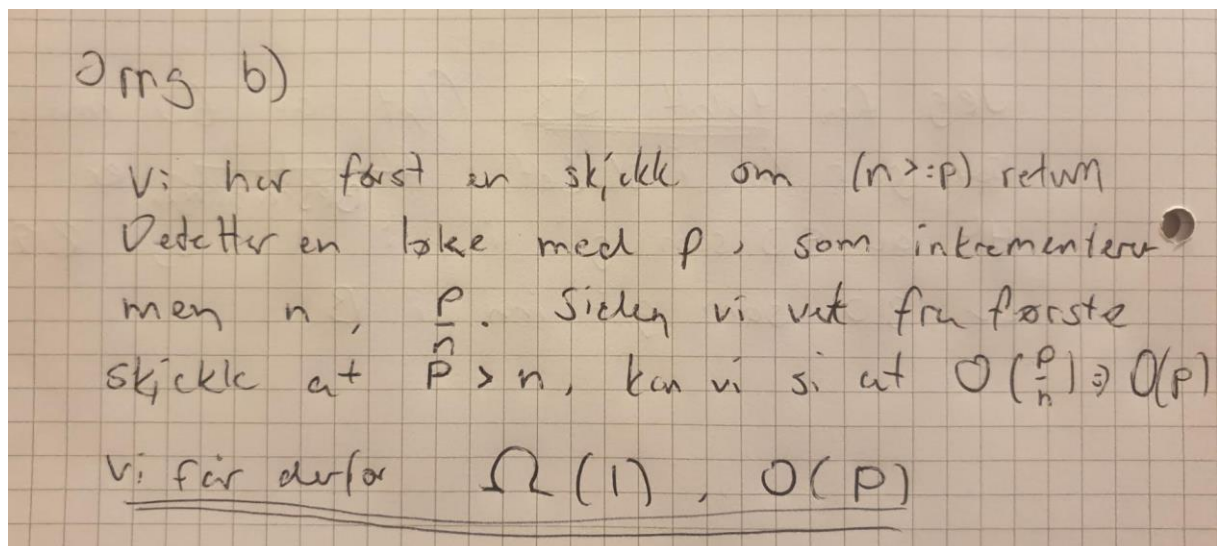 Omg b)
Vi har først en skjekk om (n >= p) return
Deretter en løke med p, som inkrementerer
men n, p/n. Siden vi vet fra første
skjekk at p > n, kan vi si at O(p/n) => O(p)
Vi får derfor Ω(1), O(p)